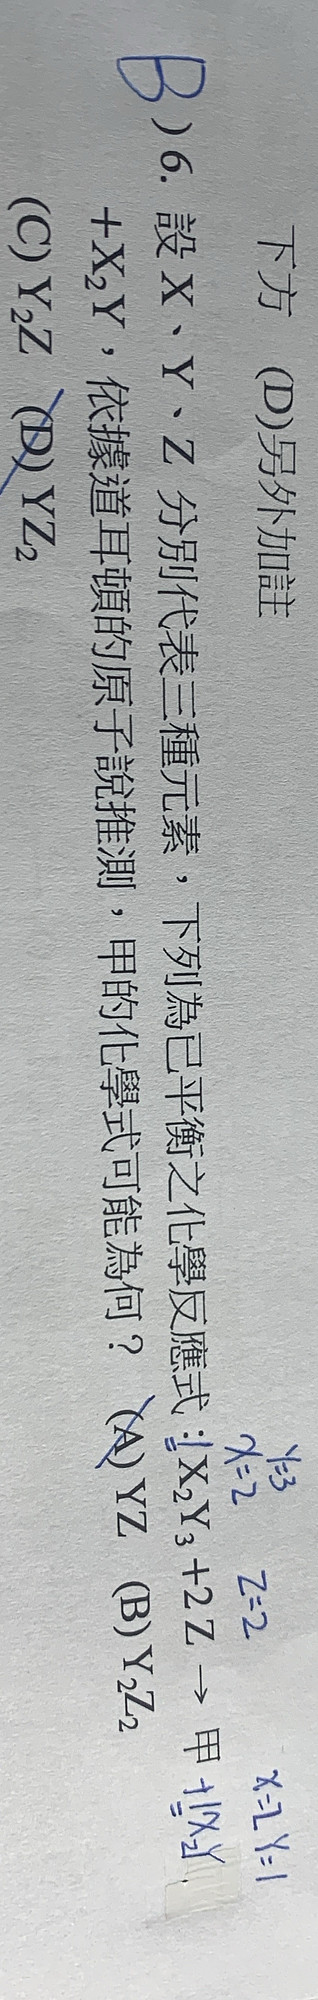 下方 (D)另外加註
Y=3
X=2 Z=2 X=2 Y=1
B )6. 設 X、Y、Z 分別代表三種元素，下列為已平衡之化學反應式：1X₂Y₃+2Z → 甲+1X₂Y
+X₂Y，依據道耳頓的原子說推測，甲的化學式可能為何？ (A) YZ (B) Y₂Z₂
(C) Y₂Z (D) YZ₂